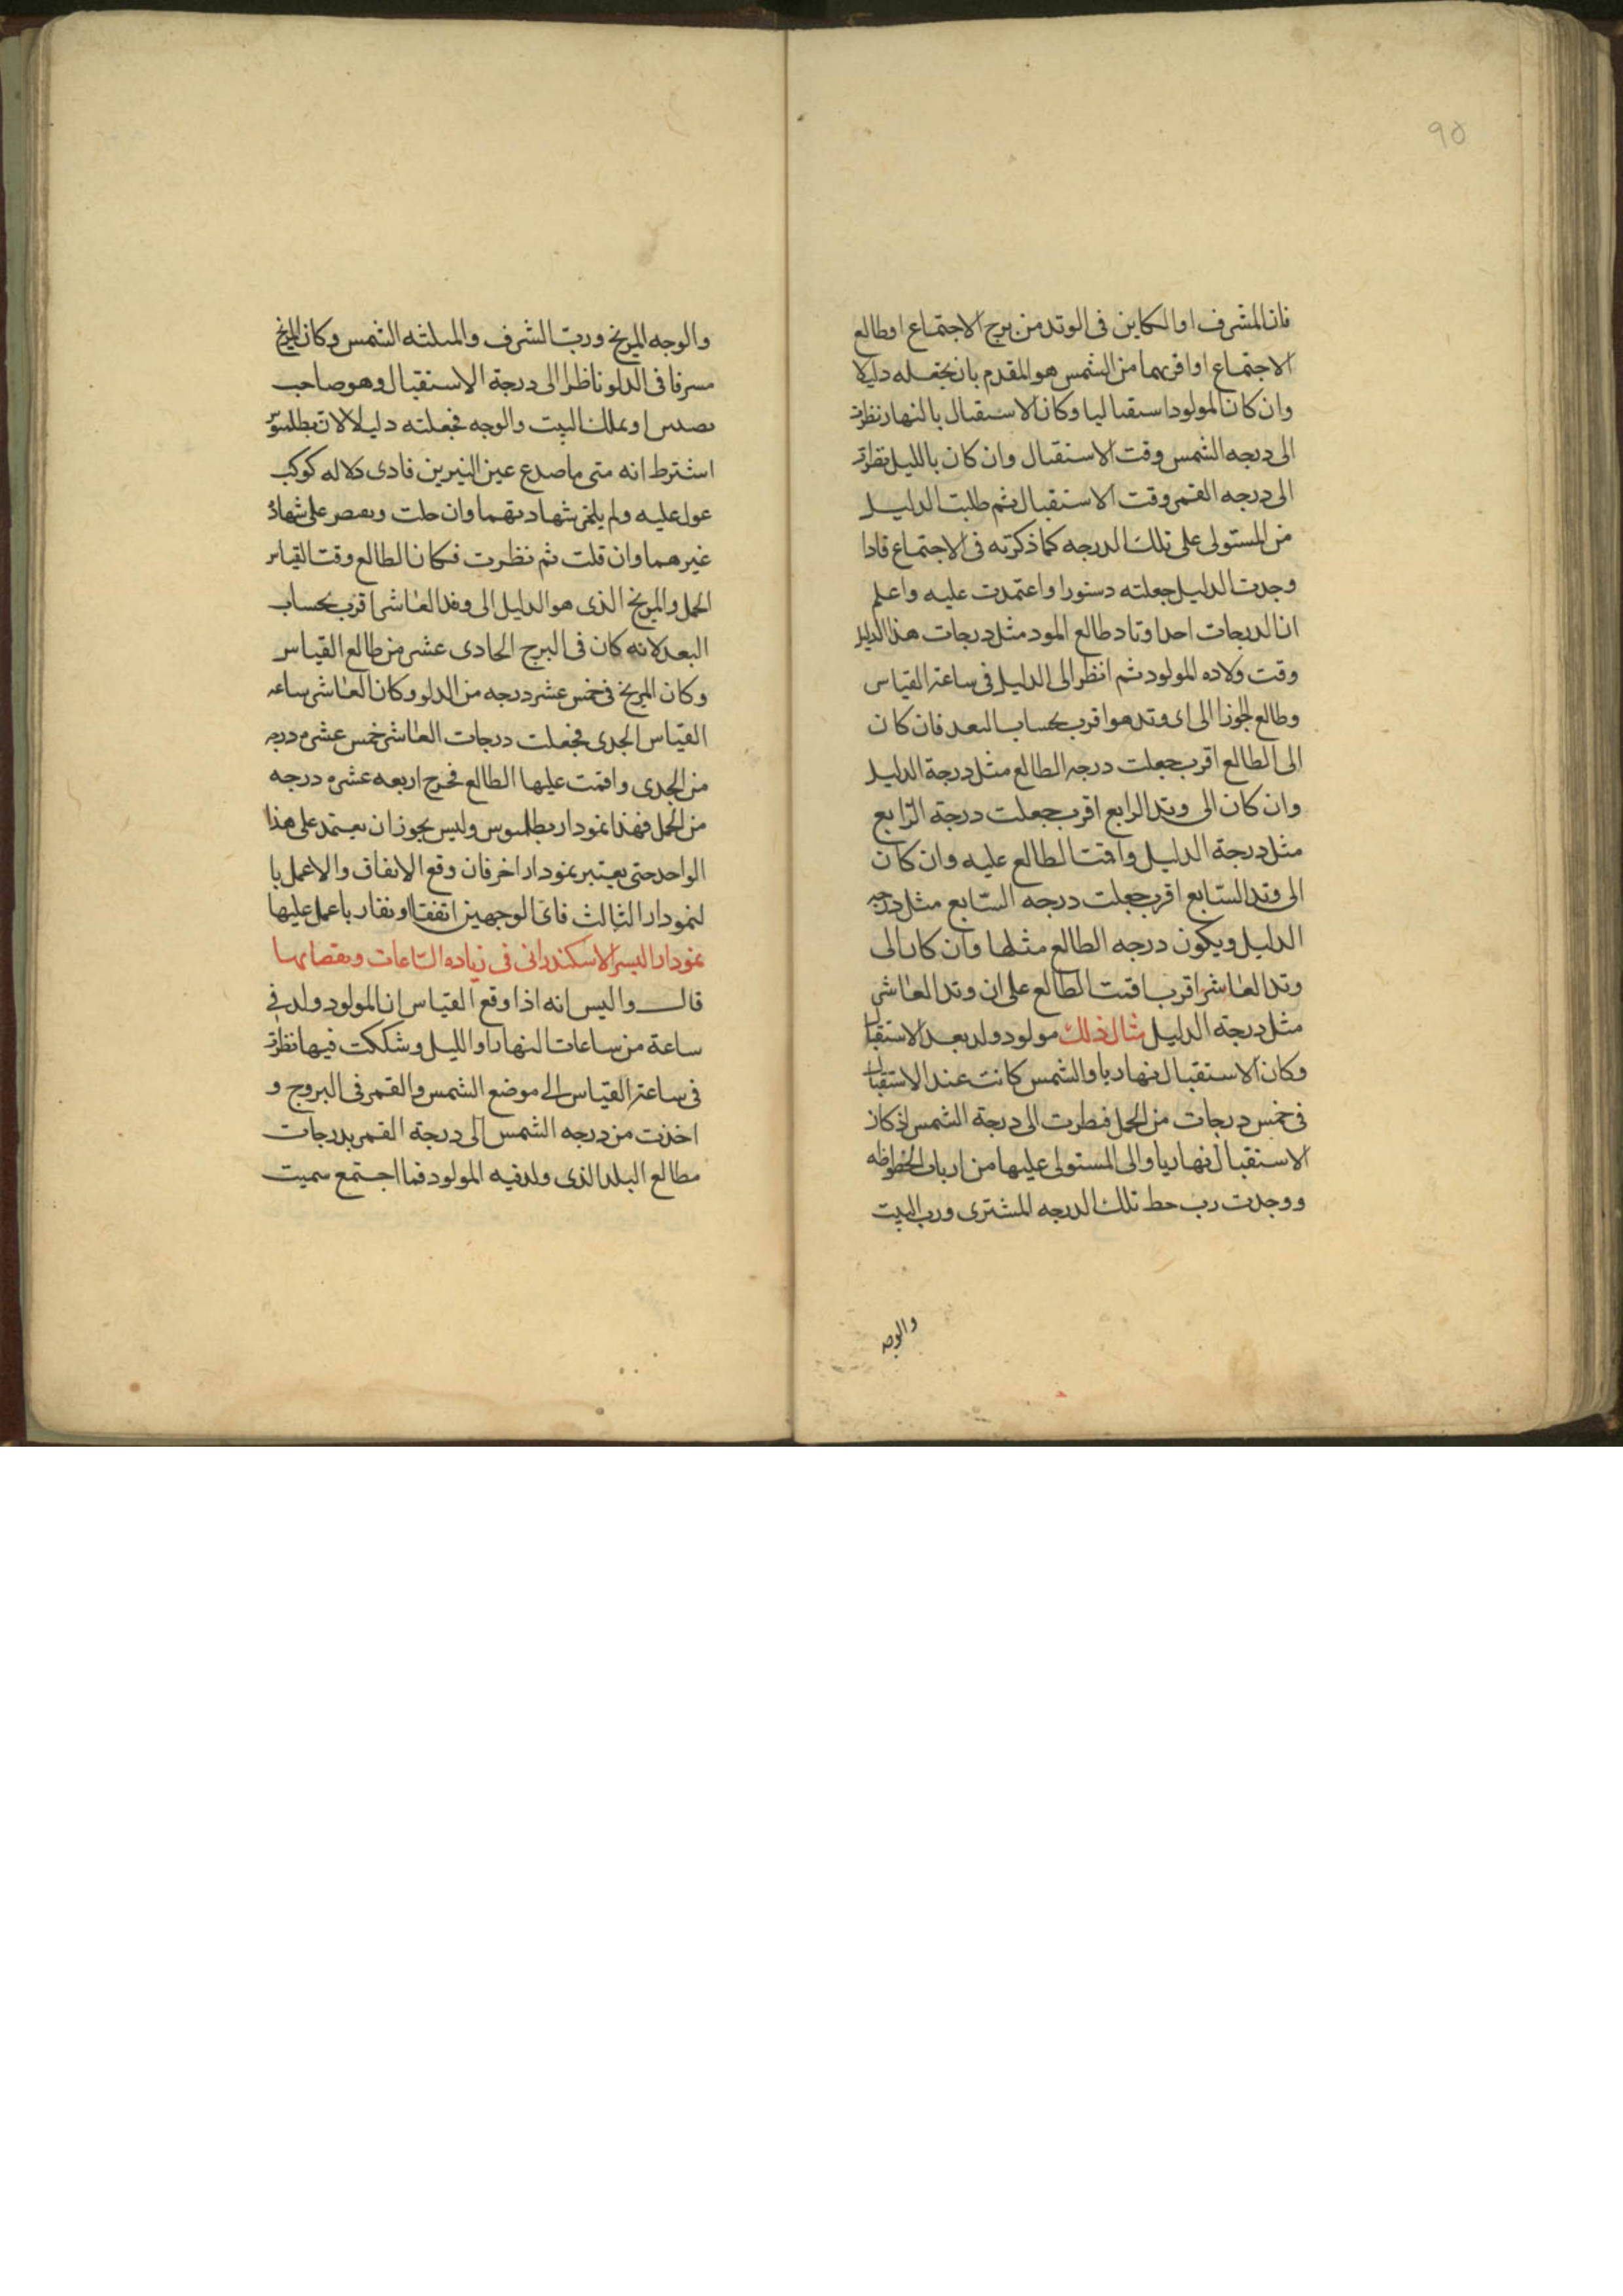 ٩٥
فان المشرف او الكاين فى الوتد من برج الاجتماع او طالع
الاجتماع او اقربهما من الشمس هو المقدم بان تجعله دليلا
وان كان المولود استقباليا وكان الاستقبال بالنهار نظرت
الى درجه الشمس وقت الاستقبال وان كان بالليل نظرت
الى درجه القمر وقت الاستقبال ثم طلبت الدليل
من المستولى على تلك الدرجه كما ذكرته فى الاجتماع فاذا
وجدت الدليل جعلته دستورا واعتمدت عليه واعلم
ان الدرجات احد اوتاد طالع المود مثل درجات هذا الدليل
وقت ولاده المولود ثم انظر الى الدليل فى ساعة القياس
وطالع الجوزا الى اى وتد هو اقرب بحساب البعد فان كان
الى الطالع اقرب جعلت درجه الطالع مثل درجة الدليل
وان كان الى وتد الرابع اقرب جعلت درجة الرابع
مثل درجة الدليل واقمت الطالع عليه وان كان
الى وتد السابع اقرب جعلت درجه السابع مثل درجه
الدليل ويكون درجه الطالع مثلها وان كان الى
وتد العاشر اقرب اقمت الطالع على ان وتد العاشر
مثل درجة الدليل مثال ذلك مولود ولد بعد الاستقبال
وكان الاستقبال نهاريا والشمس كانت عند الاستقبال
فى خمس درجات من الحمل فنظرت الى درجة الشمس اذ كان
الاستقبال نهاريا والى المستولى عليها من ارباب الحظوظ
ووجدت رب حط تلك الدرجه المشترى ورب البيت
والوجه
والوجه المريخ ورب الشرف والمثلثه الشمس وكان المريخ
مسرفا فى الدلو ناظرا الى درجة الاستقبال وهو صاحب
او يملك البيت والوجه فجعلته دليلا لان بطلميوس
اشترط انه متى ما صدع عين النيرين فادى دلاله كوكب
عول عليه ولم يلغ شهادتهما وان حلت على شهادة
غيرهما وان قلت ثم نظرت فكان الطالع وقت القياس
الحمل والمريخ الذى هو الدليل الى وتد العاشر اقرب بحساب
البعد لانه كان فى البرج الحادى عشر من طالع القياس
وكان المريخ فى خمس عشر درجه من الدلو وكان العاشر ساعه
القياس الجدى فجعلت درجات العاشر خمس عشره درجه
من الجدى واقمت عليها الطالع فخرج اربعه عشره درجه
من الحمل فهذا نمودار بطلميوس وليس يجوز ان يعتمد على هذا
الواحد حتى يعتبر نمودار اخر فان وقع الاتفاق والا عمل با
لنمودار الثالث فاى الوجهين اتفقا او تقاربا عمل عليها
نمودار اليس الاسكندرانى فى زياده الساعات ونقصانها
قال واليس انه اذا وقع القياس ان المولود ولد فى
ساعة من ساعات النهار او الليل وشككت فيها نظرت
فى ساعة القياس الى موضع الشمس والقمر فى البروج و
اخذت من درجه الشمس الى درجة القمر بدرجات
مطالع البلد الذى ولد فيه المولود فما اجتمع سميت